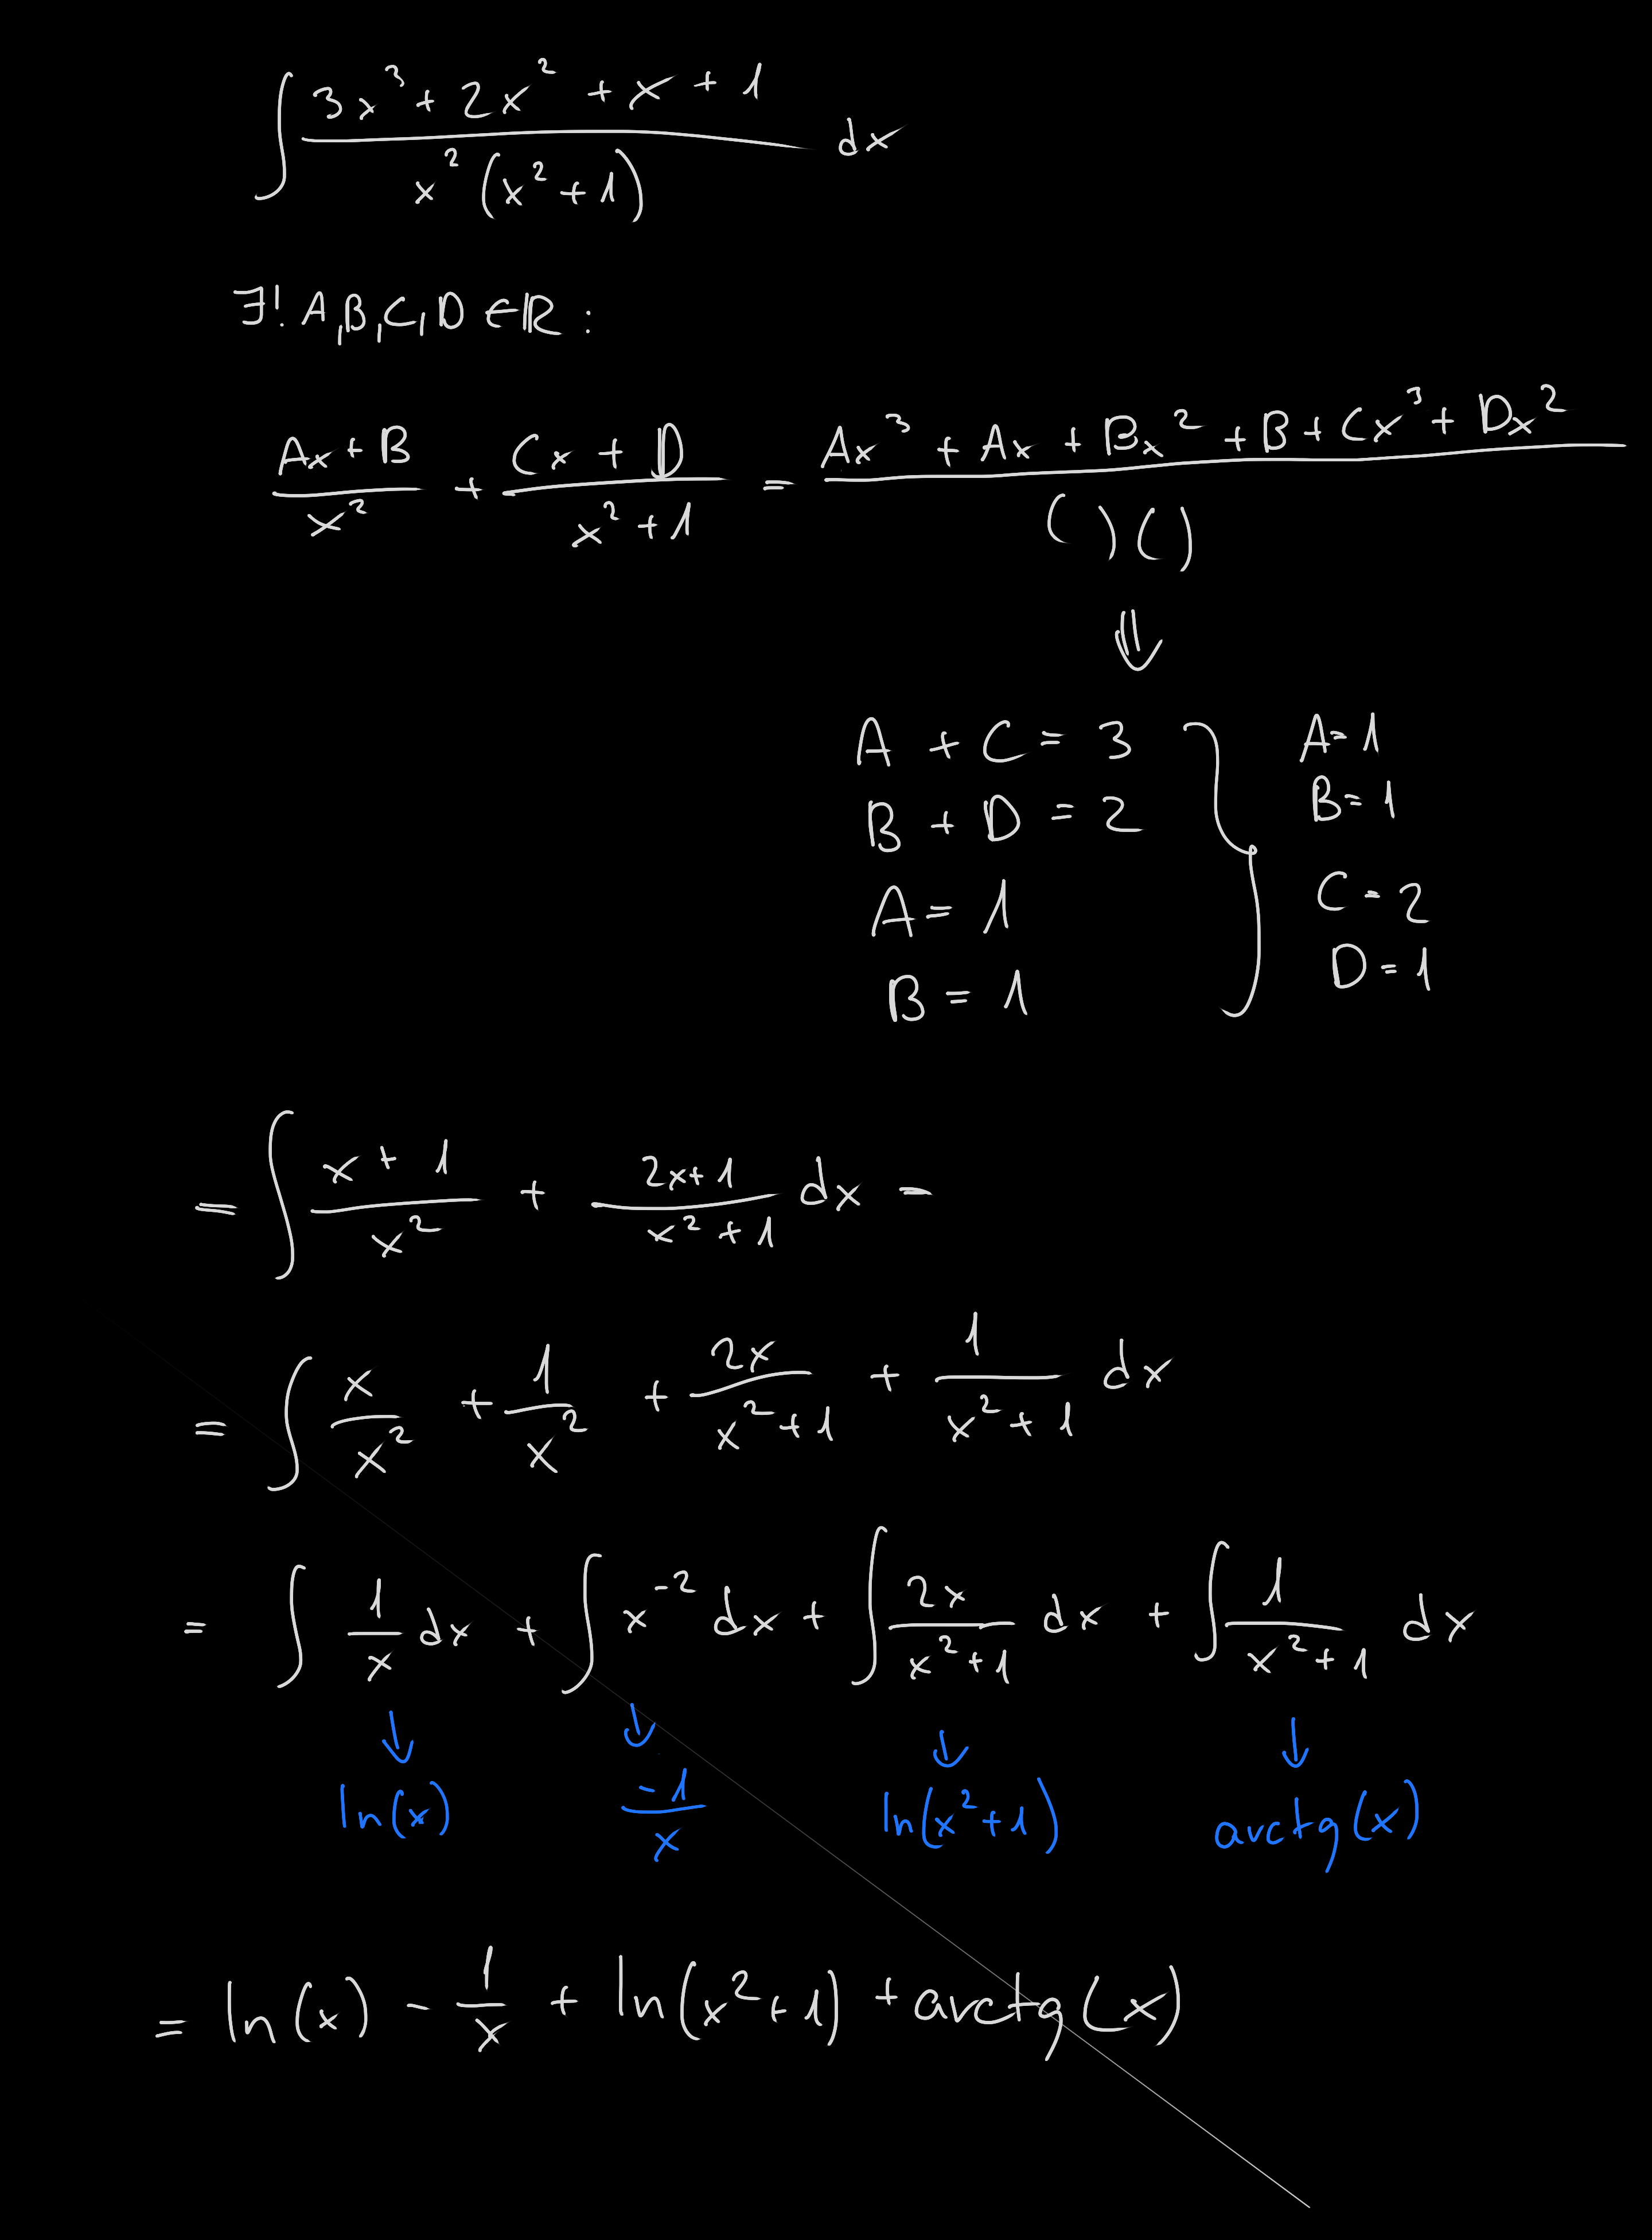 ∫ (3x³ + 2x² + x + 1) / (x² (x² + 1)) dx
∃! A, B, C, D ∈ ℝ :
(Ax + B) / x² + (Cx + D) / (x² + 1) = (Ax³ + Ax + Bx² + B + Cx³ + Dx²) / ( ) ( )
⇓
A + C = 3
B + D = 2
A = 1
B = 1
A = 1
B = 1
C = 2
D = 1
= ∫ (x + 1) / x² + (2x + 1) / (x² + 1) dx =
= ∫ x / x² + 1 / x² + 2x / (x² + 1) + 1 / (x² + 1) dx
= ∫ 1/x dx + ∫ x⁻² dx + ∫ 2x / (x² + 1) dx + ∫ 1 / (x² + 1) dx
↓ ↓ ↓ ↓
ln(x) -1/x ln(x² + 1) arctg(x)
= ln(x) - 1/x + ln(x² + 1) + arctg(x)